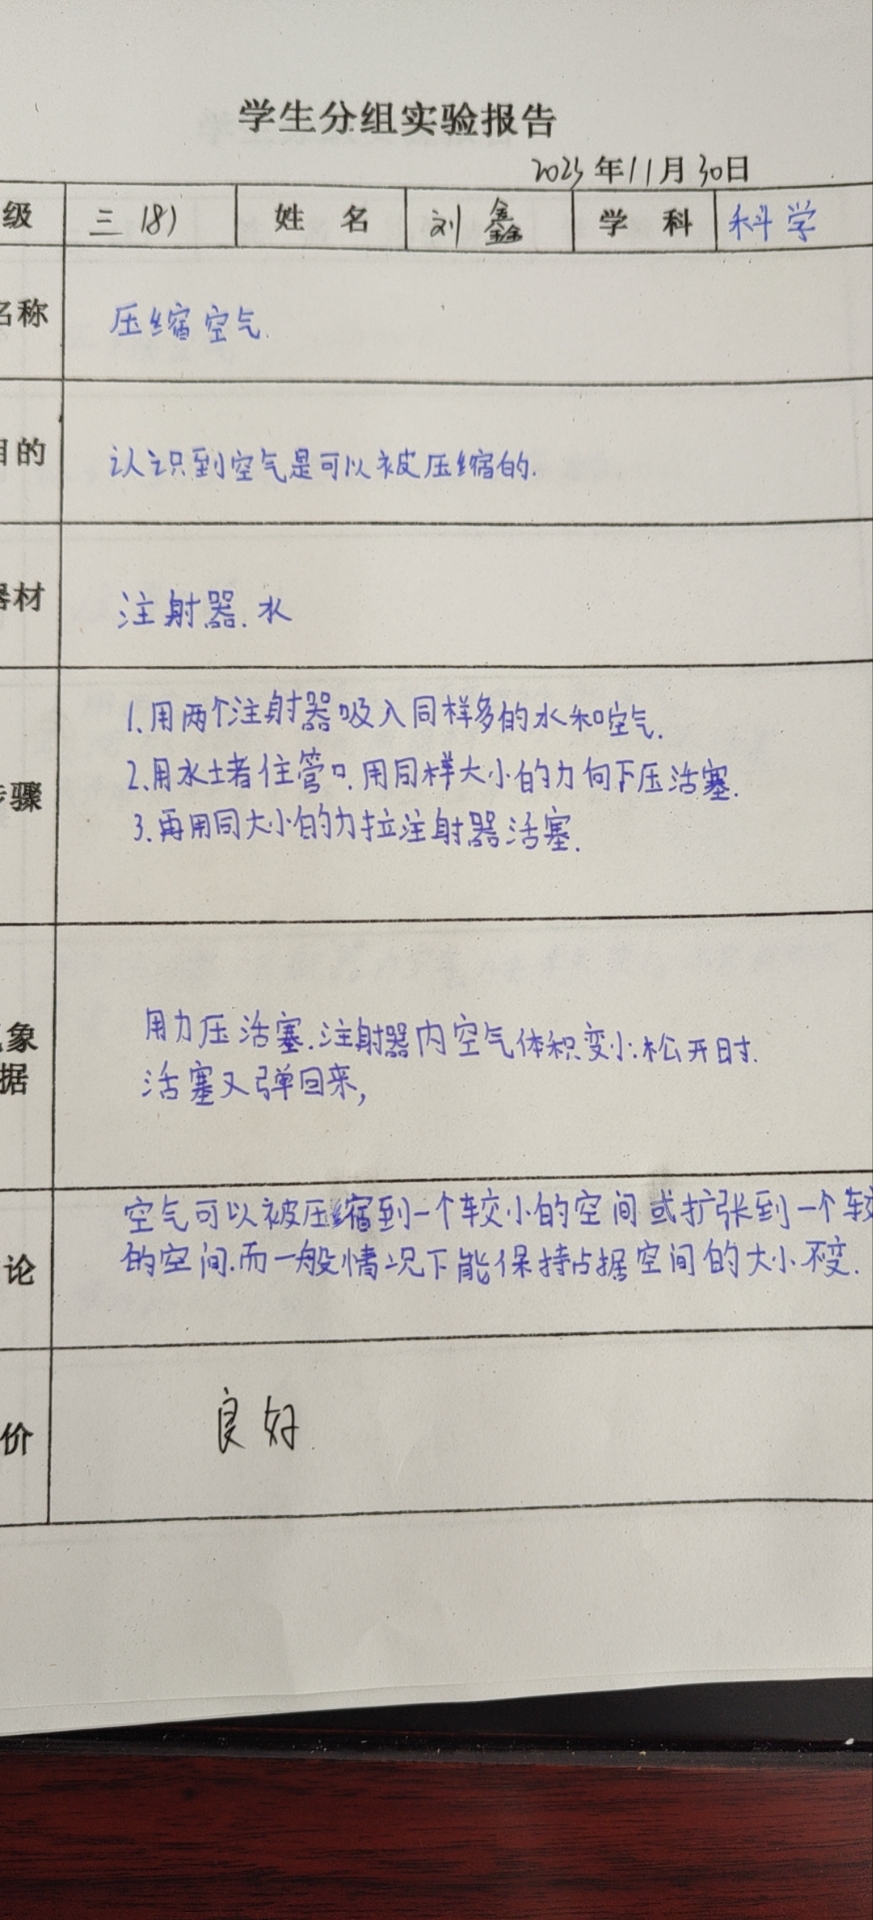 学生分组实验报告
2023年11月30日
级 三(8) 姓名 刘鑫 学科 科学
名称 压缩空气.
目的 认识到空气是可以被压缩的.
器材 注射器.水
1.用两个注射器吸入同样多的水和空气.
步骤 2.用水堵住管口.用同样大小的力向下压活塞.
3.再用同大小的力拉注射器活塞.
象 用力压活塞.注射器内空气体积变小:松开时.
据 活塞又弹回来,
空气可以被压缩到一个较小的空间或扩张到一个较
论 的空间.而一般情况下能保持占据空间的大小不变.
价 良好